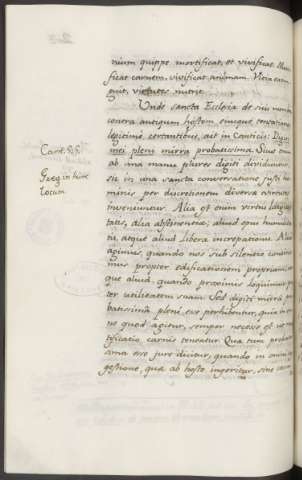 nium quippe mortificat, et vivificat. Mor
ficat carnem, vivificat animam. Vitia extin
guit, virtutes nutrit.
Unde sancta Ecclesia de suis mem
contra antiquum hostem, eiusque tentationes
legitime certantibus, ait in Canticis: Digi
mei pleni mirra probatissima. Sicut en
ab una manu plures digiti dividuntur,
sic in una sancta conversatione justi ho
minis per discretionem diversa virtutes
inveniuntur. Alia est enim virtus largi
tatis, alia abstinentiæ, aliud opus humilita
tis, atque aliud libera increpationis. Aliud
agimus, quando nos sub silentio contine
mus propter edificationem propriam, at
que aliud, quando proximis loquimur prop
ter utilitatem suam. Sed digiti mirra pro
batissima pleni esse perhibentur, quia in om
ne quod agitur, semper necesse est ut mor
tificatio carnis teneatur. Qua tunc probatis
sima esse jure dicitur, quando in omni sug
gestione, qua ab hoste ingeritur, sine carn
Cant. 5.
Greg. in hunc
Locum